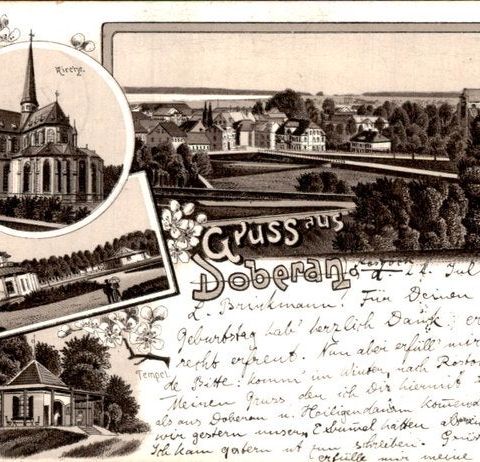 Kirche.
Gruss aus
Doberan
Tempel.
Rostock
d. 22. Jul
L. Brückmann! Für Deinen
Geburtstag hab' herzlich Dank; er
recht erfreut. Nun aber erfüll' mir
de Bitte: komm' im Winter nach Rosto
Meinen Gruss den ich Dir hiermit
als aus Doberan u. Heiligendamm
wir gestern unsern hatten
Ich kam gestern nicht zum schreiben.
erfülle mir meine